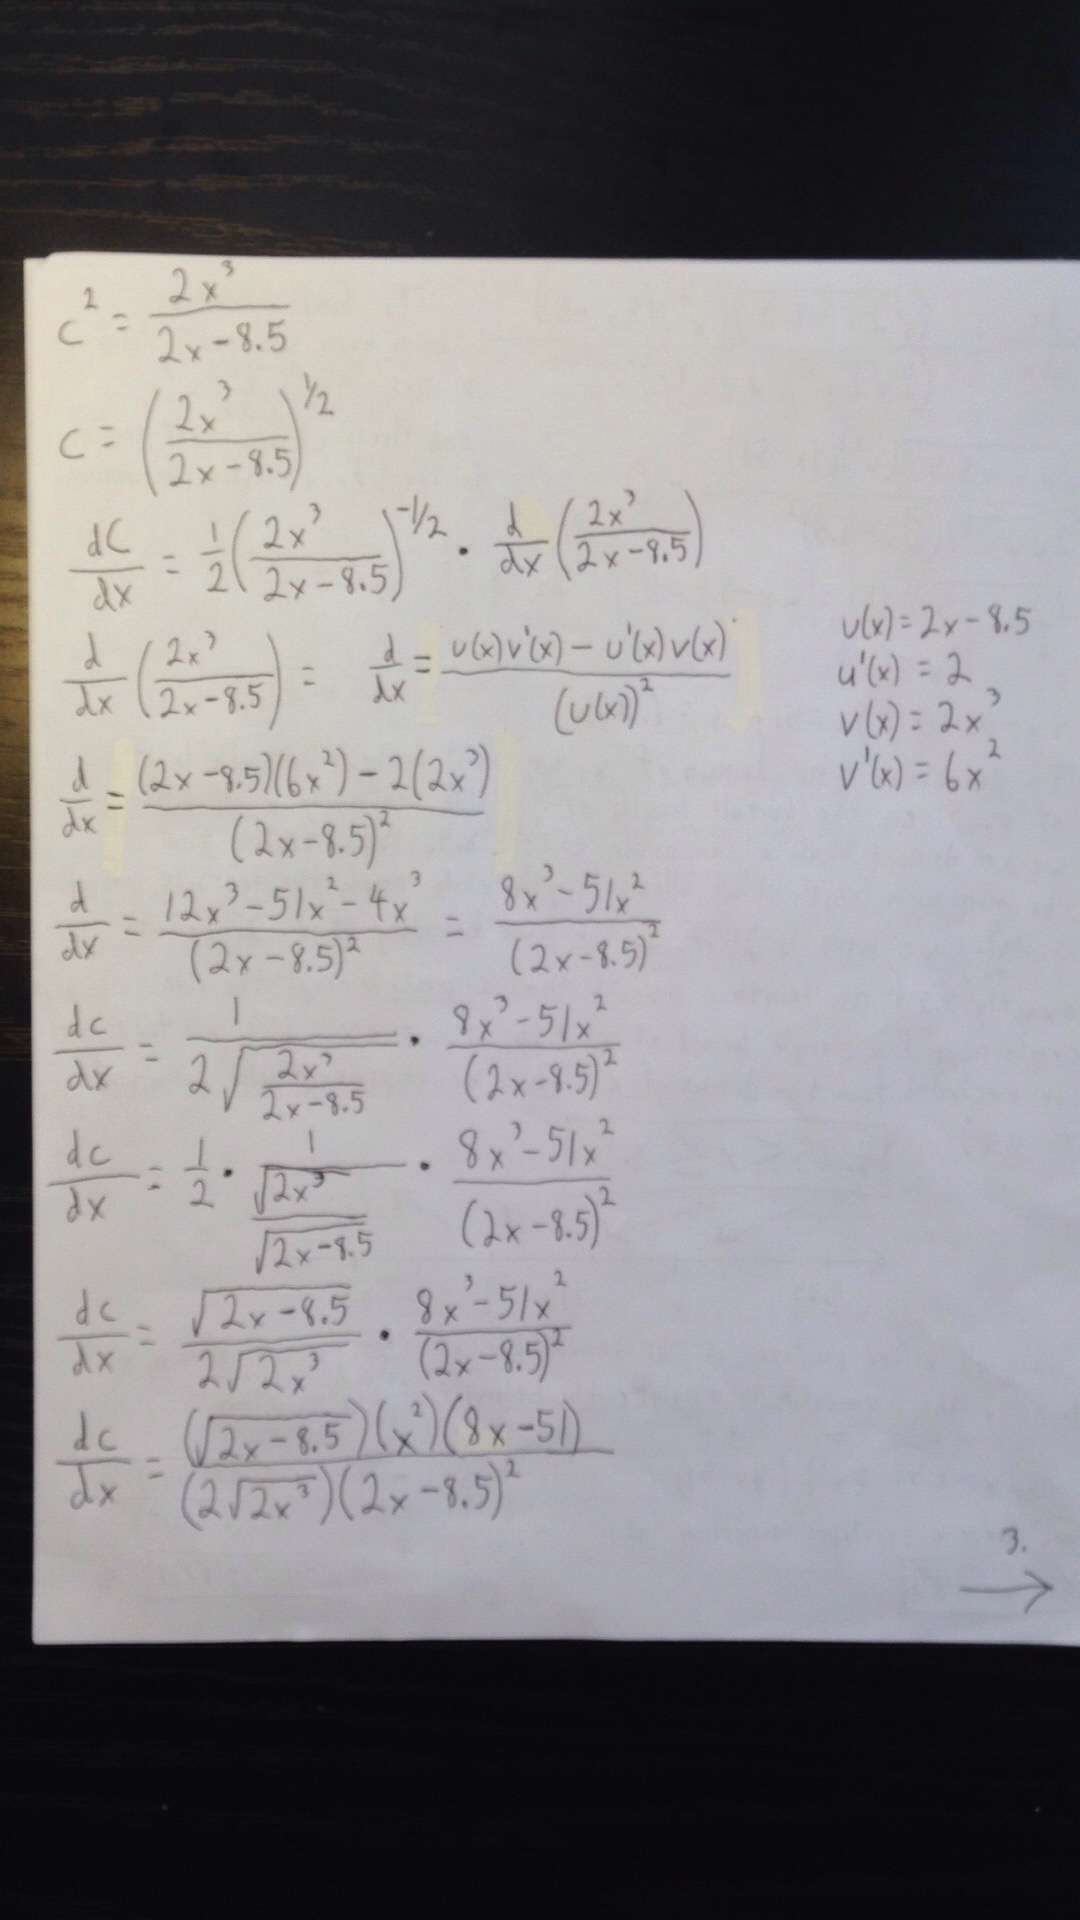 c² = 2x³/(2x-8.5)
c = (2x³/(2x-8.5))^1/2
dC/dx = 1/2 (2x³/(2x-8.5))^-1/2 · d/dx (2x³/(2x-8.5))
d/dx (2x³/(2x-8.5)) = d/dx = (u(x)v'(x) - u'(x)v(x))/(u(x))²
u(x) = 2x-8.5
u'(x) = 2
v(x) = 2x³
v'(x) = 6x²
d/dx = ((2x-8.5)(6x²) - 2(2x³))/(2x-8.5)²
d/dx = (12x³-51x²-4x³)/(2x-8.5)² = (8x³-51x²)/(2x-8.5)²
dc/dx = 1/(2√(2x³/(2x-8.5))) · (8x³-51x²)/(2x-8.5)²
dc/dx = 1/2 · 1/(√(2x³)/√(2x-8.5)) · (8x³-51x²)/(2x-8.5)²
dc/dx = √(2x-8.5)/(2√(2x³)) · (8x³-51x²)/(2x-8.5)²
dc/dx = (√(2x-8.5))(x²)(8x-51)/((2√(2x³))(2x-8.5)²)
3.
→